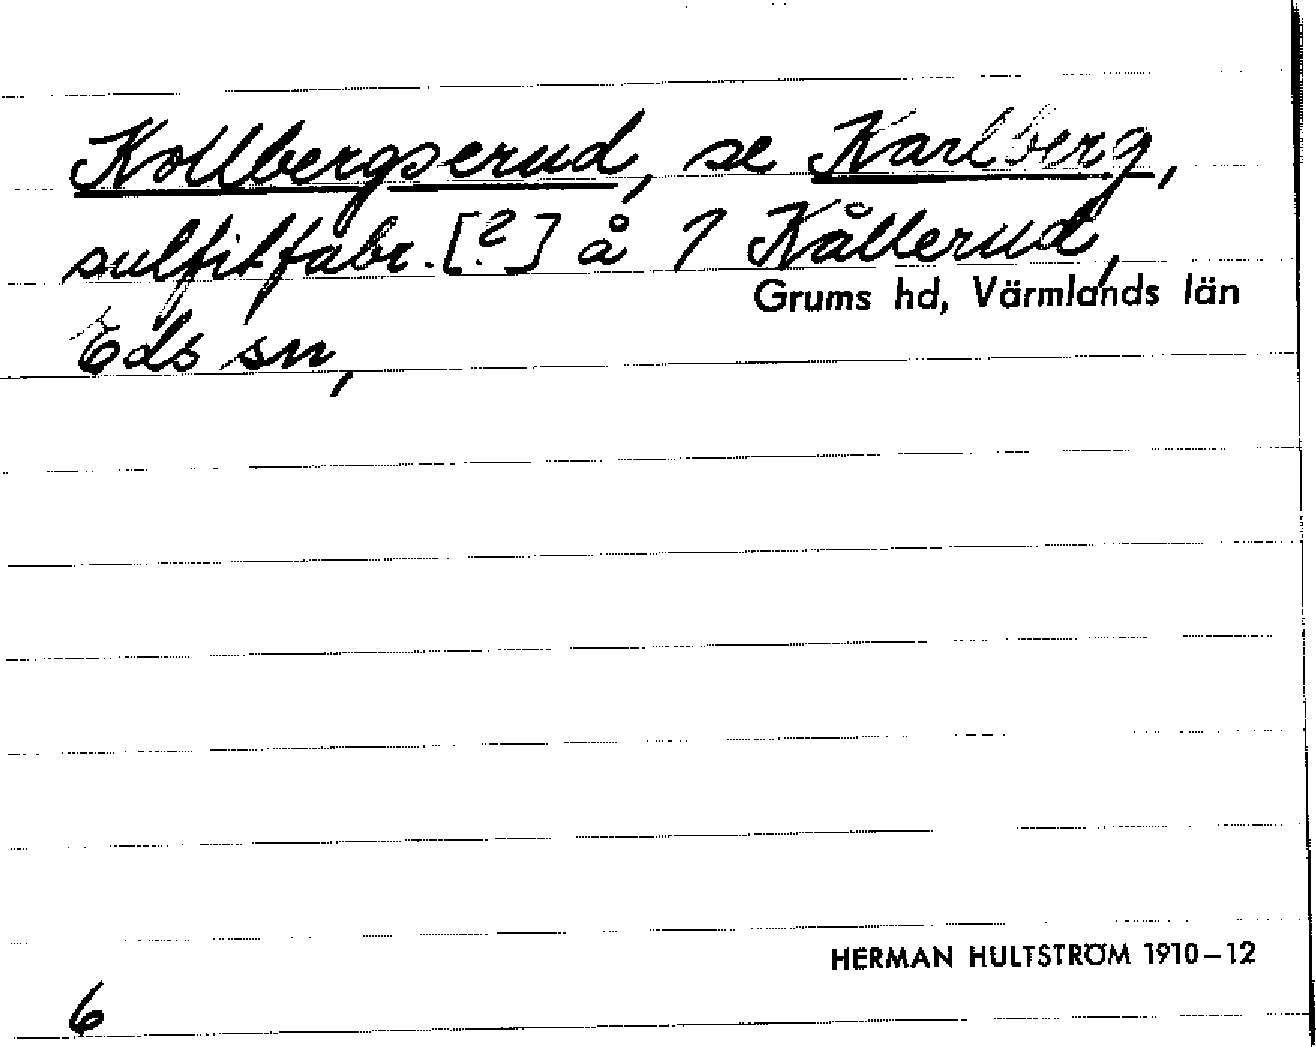 Kollbergserud, se Karlberg,
sulfitfabr. [?] å 1 Kållerud,
Grums hd, Värmlands län
Eds sn,
HERMAN HULTSTRÖM 1910–12
6